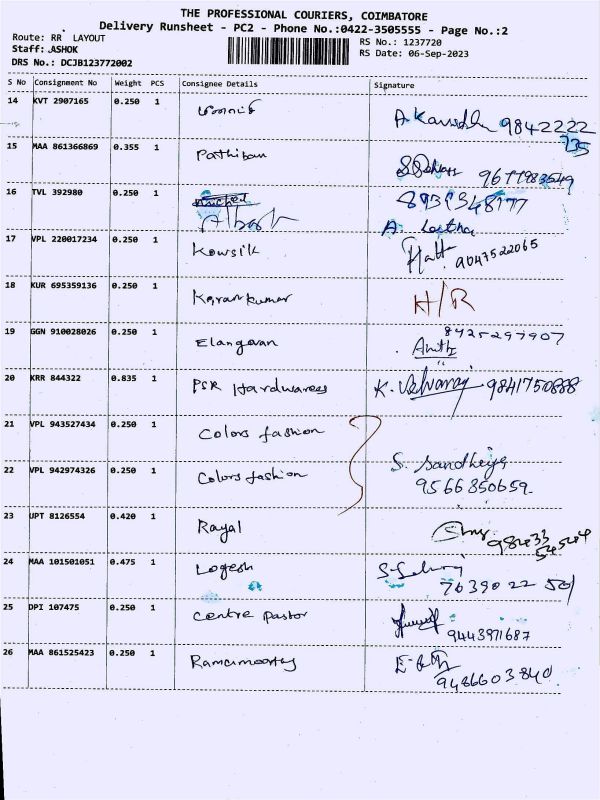 THE PROFESSIONAL COURIERS, COIMBATORE
Delivery Runsheet - PC2 - Phone No.:0422-3505555 - Page No.:2
Route: RR LAYOUT
RS No.: 1237720
Staff: ASHOK
RS Date: 06-Sep-2023
DRS No.: DCJB123772002
S No Consignment No Weight PCS Consignee Details Signature
14 KVT 2907165 0.250 1 9842222
735
15 MAA 861366869 0.355 1 Pathiban 9677983549
16 TVL 392980 0.250 1
A. Latha
17 VPL 220017234 0.250 1 Kowsik 9047522065
18 KUR 695359136 0.250 1 Karankumar H/R
19 GGN 910028026 0.250 1 Elangovan 8925297907
20 KRR 844322 0.835 1 PSR Hardwares K. Selvaraj 9841750888
21 VPL 943527434 0.250 1 Colors fashion
22 VPL 942974326 0.250 1 Colors fashion S. Sandhiya
9566350659
23 UPT 8126554 0.420 1 Rayal 98433
54544
24 MAA 101501051 0.475 1 Logesh 7639022 501
25 DPI 107475 0.250 1 Centre Pastor 9443971687
26 MAA 861525423 0.250 1 Ramamoorthy 9486603840